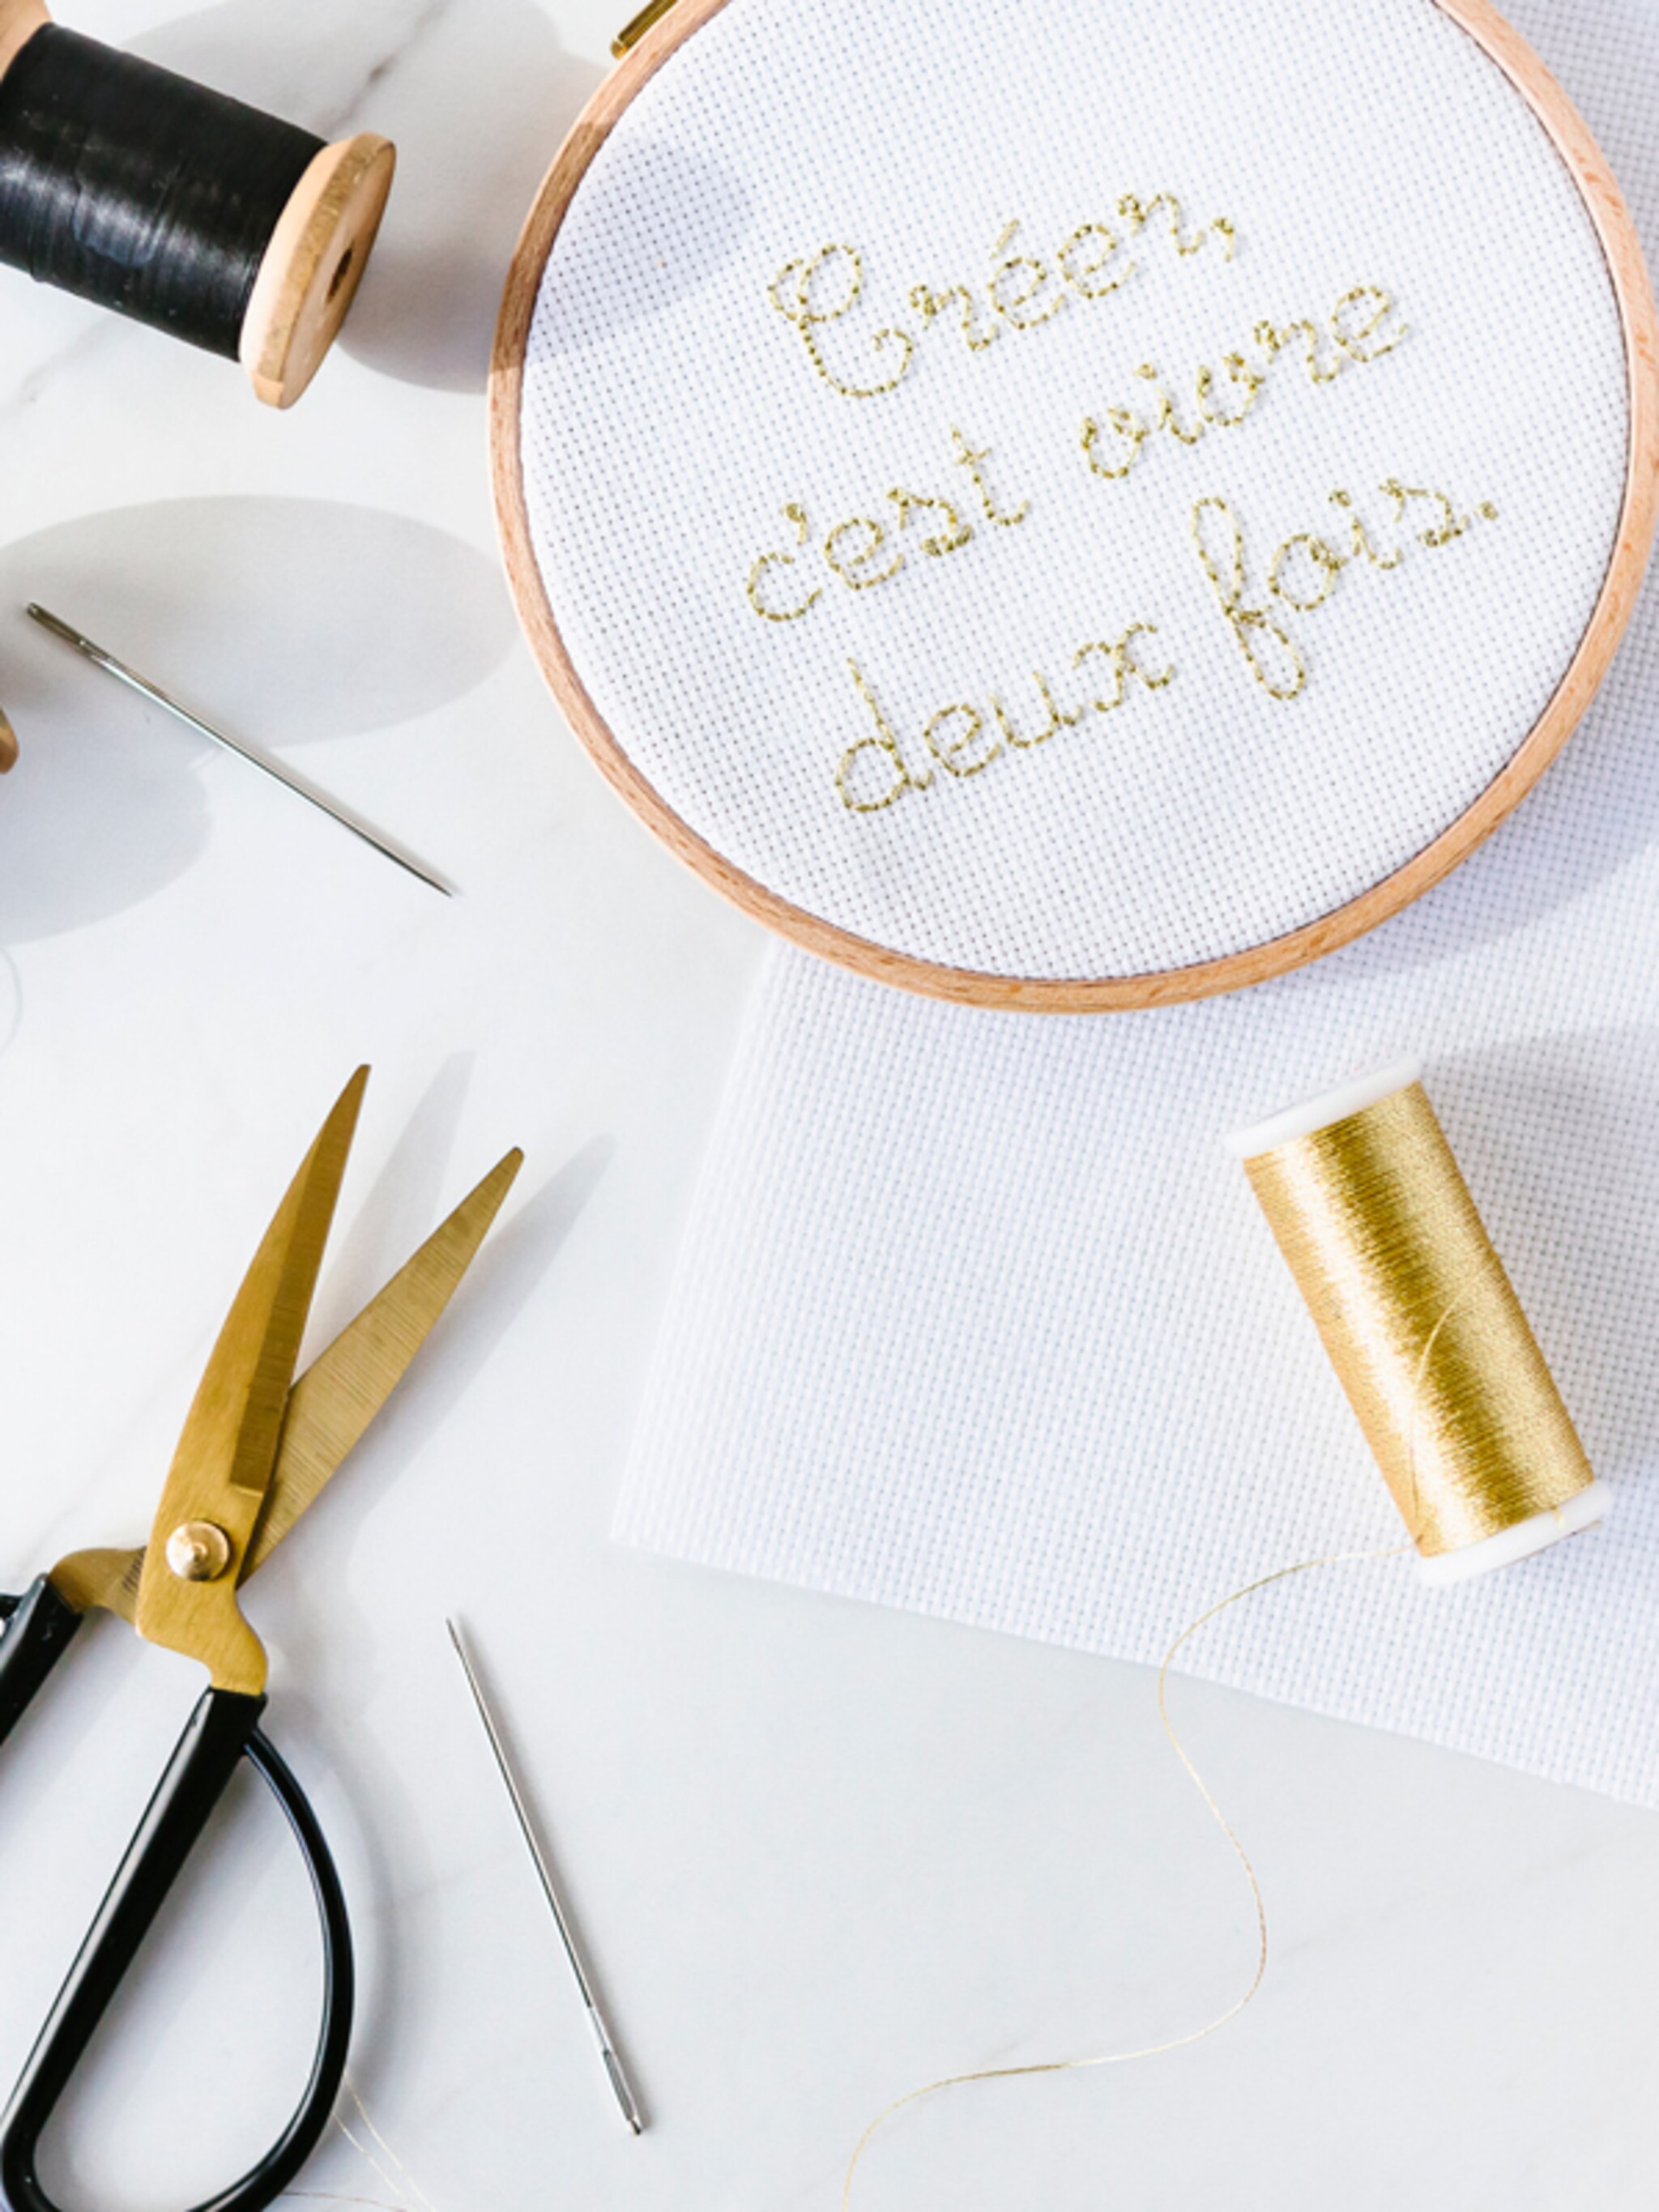 Créer,
c'est vivre
deux fois.